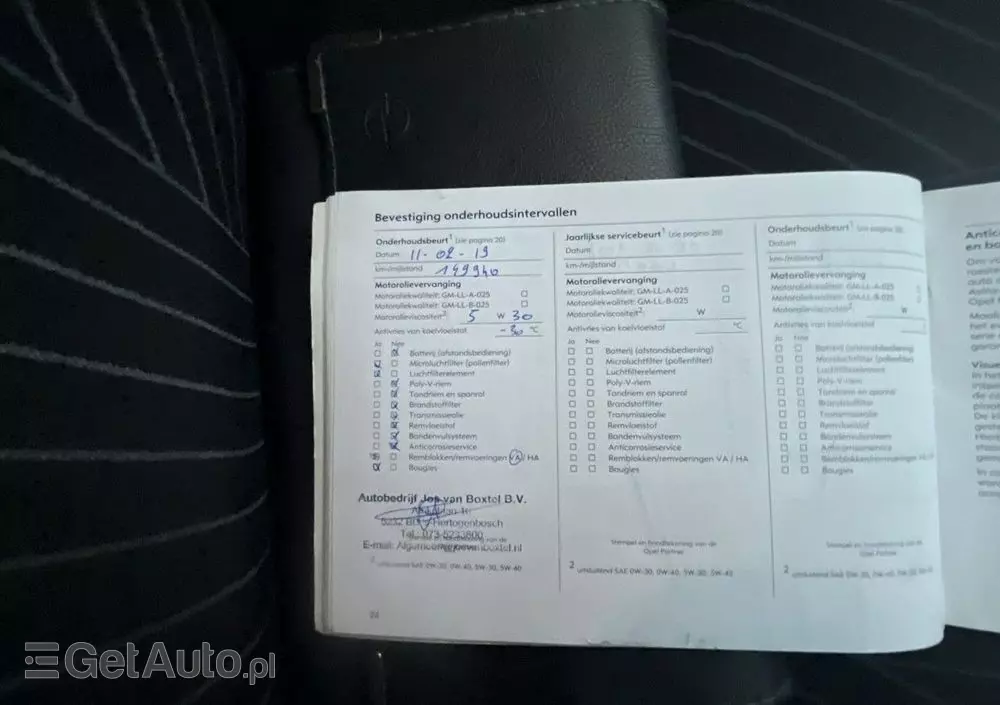 Bevestiging onderhoudsintervallen
Onderhoudsbeurt1 (zie pagina 20)
Datum 11-02-19
km-/mijlstand 149940
Motorolievervanging
Motoroliekwaliteit: GM-LL-A-025
Motoroliekwaliteit: GM-LL-B-025
Motorolieviscositeit2: 5 W 30
Antivries van koelvloeistof -30 °C
Ja Nee
Batterij (afstandsbediening)
Microluchtfilter (pollenfilter)
Luchtfilterelement
Poly-V-riem
Tandriem en spanrol
Brandstoffilter
Transmissieolie
Remvloeistof
Bandenvulsysteem
Anticorrosieservice
Remblokken/remvoeringen VA / HA
Bougies
Autobedrijf Jos van Boxtel B.V.
Hertogenbosch
Tel. 073-5233800
E-mail:
2 uitsluitend SAE 0W-30, 0W-40, 5W-30, 5W-40
Jaarlijkse servicebeurt1 (zie pagina 20)
Datum
km-/mijlstand
Motorolievervanging
Motoroliekwaliteit: GM-LL-A-025
Motoroliekwaliteit: GM-LL-B-025
Motorolieviscositeit2: W
Antivries van koelvloeistof °C
Ja Nee
Batterij (afstandsbediening)
Microluchtfilter (pollenfilter)
Luchtfilterelement
Poly-V-riem
Tandriem en spanrol
Brandstoffilter
Transmissieolie
Remvloeistof
Bandenvulsysteem
Anticorrosieservice
Remblokken/remvoeringen VA / HA
Bougies
Stempel en handtekening van de
Opel Partner
2 uitsluitend SAE 0W-30, 0W-40, 5W-30, 5W-40
Onderhoudsbeurt1 (zie pagina 20)
Datum
km-/mijlstand
Motorolievervanging
Motoroliekwaliteit: GM-LL-A-025
Motoroliekwaliteit: GM-LL-B-025
Motorolieviscositeit2 W
Antivries van koelvloeistof
Ja Nee
Batterij (afstandsbediening)
Microluchtfilter (pollenfilter)
Luchtfilterelement
Poly-V-riem
Tandriem en spanrol
Brandstoffilter
Transmissieolie
Remvloeistof
Bandenvulsysteem
Anticorrosieservice
Remblokken/remvoeringen VA
Bougies
Stempel en handtekening van de
Opel Partner
2 uitsluitend SAE 0W-30, 0W-40,
GetAuto.pl